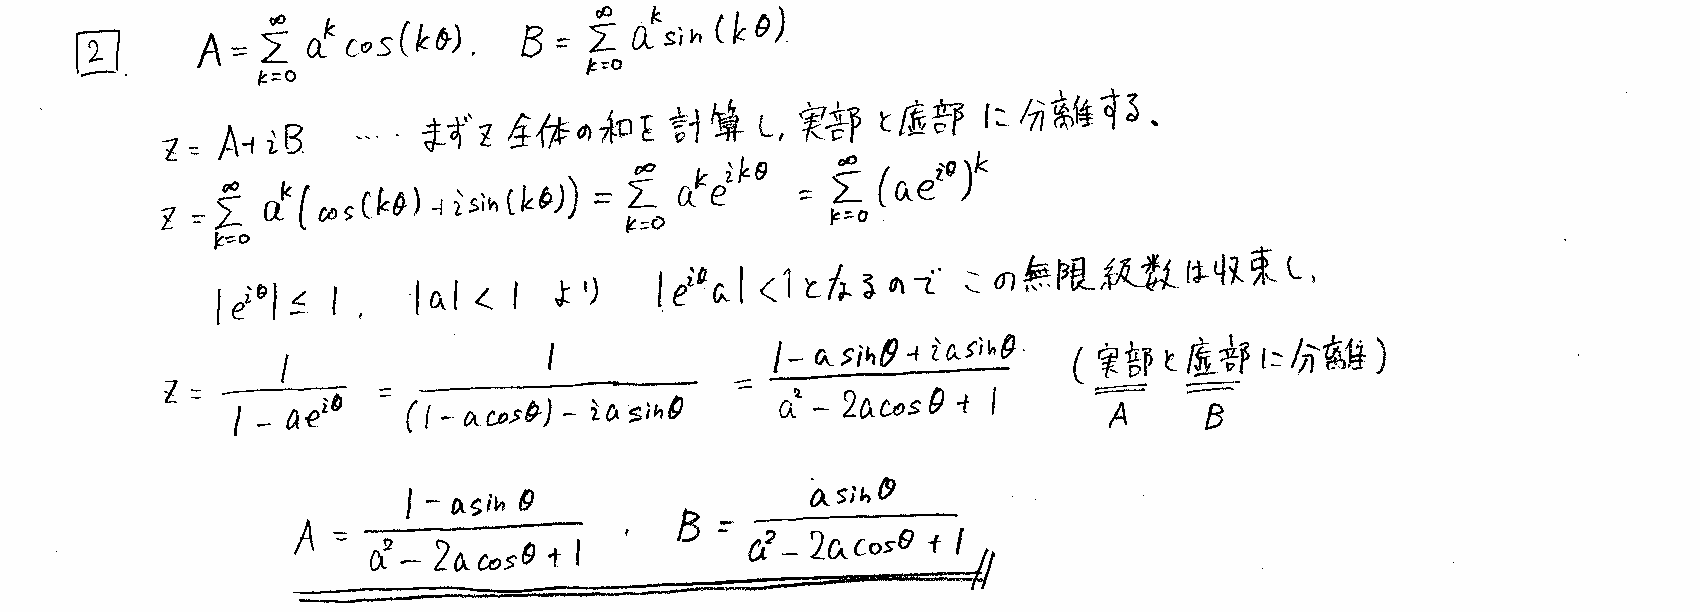 2. A = Σ_{k=0}^{∞} a^k cos(kθ). B = Σ_{k=0}^{∞} a^k sin(kθ).
z = A+iB ‥‥ まずz全体の和を計算し, 実部と虚部に分離する、
z = Σ_{k=0}^{∞} a^k (cos(kθ)+i sin(kθ)) = Σ_{k=0}^{∞} a^k e^{ikθ} = Σ_{k=0}^{∞} (ae^{iθ})^k
|e^{iθ}| ≤ 1. |a| < 1 より |e^{iθ}a| < 1 となるので この無限級数は収束し,
z = 1/(1-ae^{iθ}) = 1/((1-a cosθ)-ia sinθ) = (1-a sinθ+ia sinθ)/(a^2-2a cosθ+1) (実部と虚部に分離)
A B
A = (1-a sinθ)/(a^2-2a cosθ+1) . B = (a sinθ)/(a^2-2a cosθ+1)